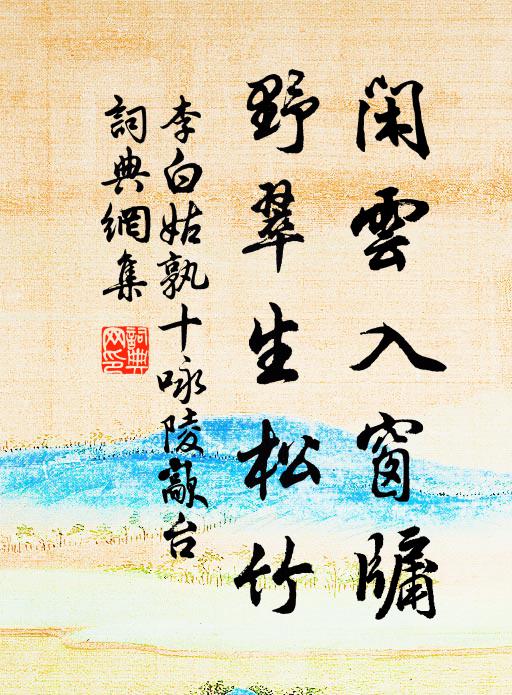 閑雲入窗牖
野翠生松竹
李白姑孰十咏陵歊台
詞典網集
詞典網印